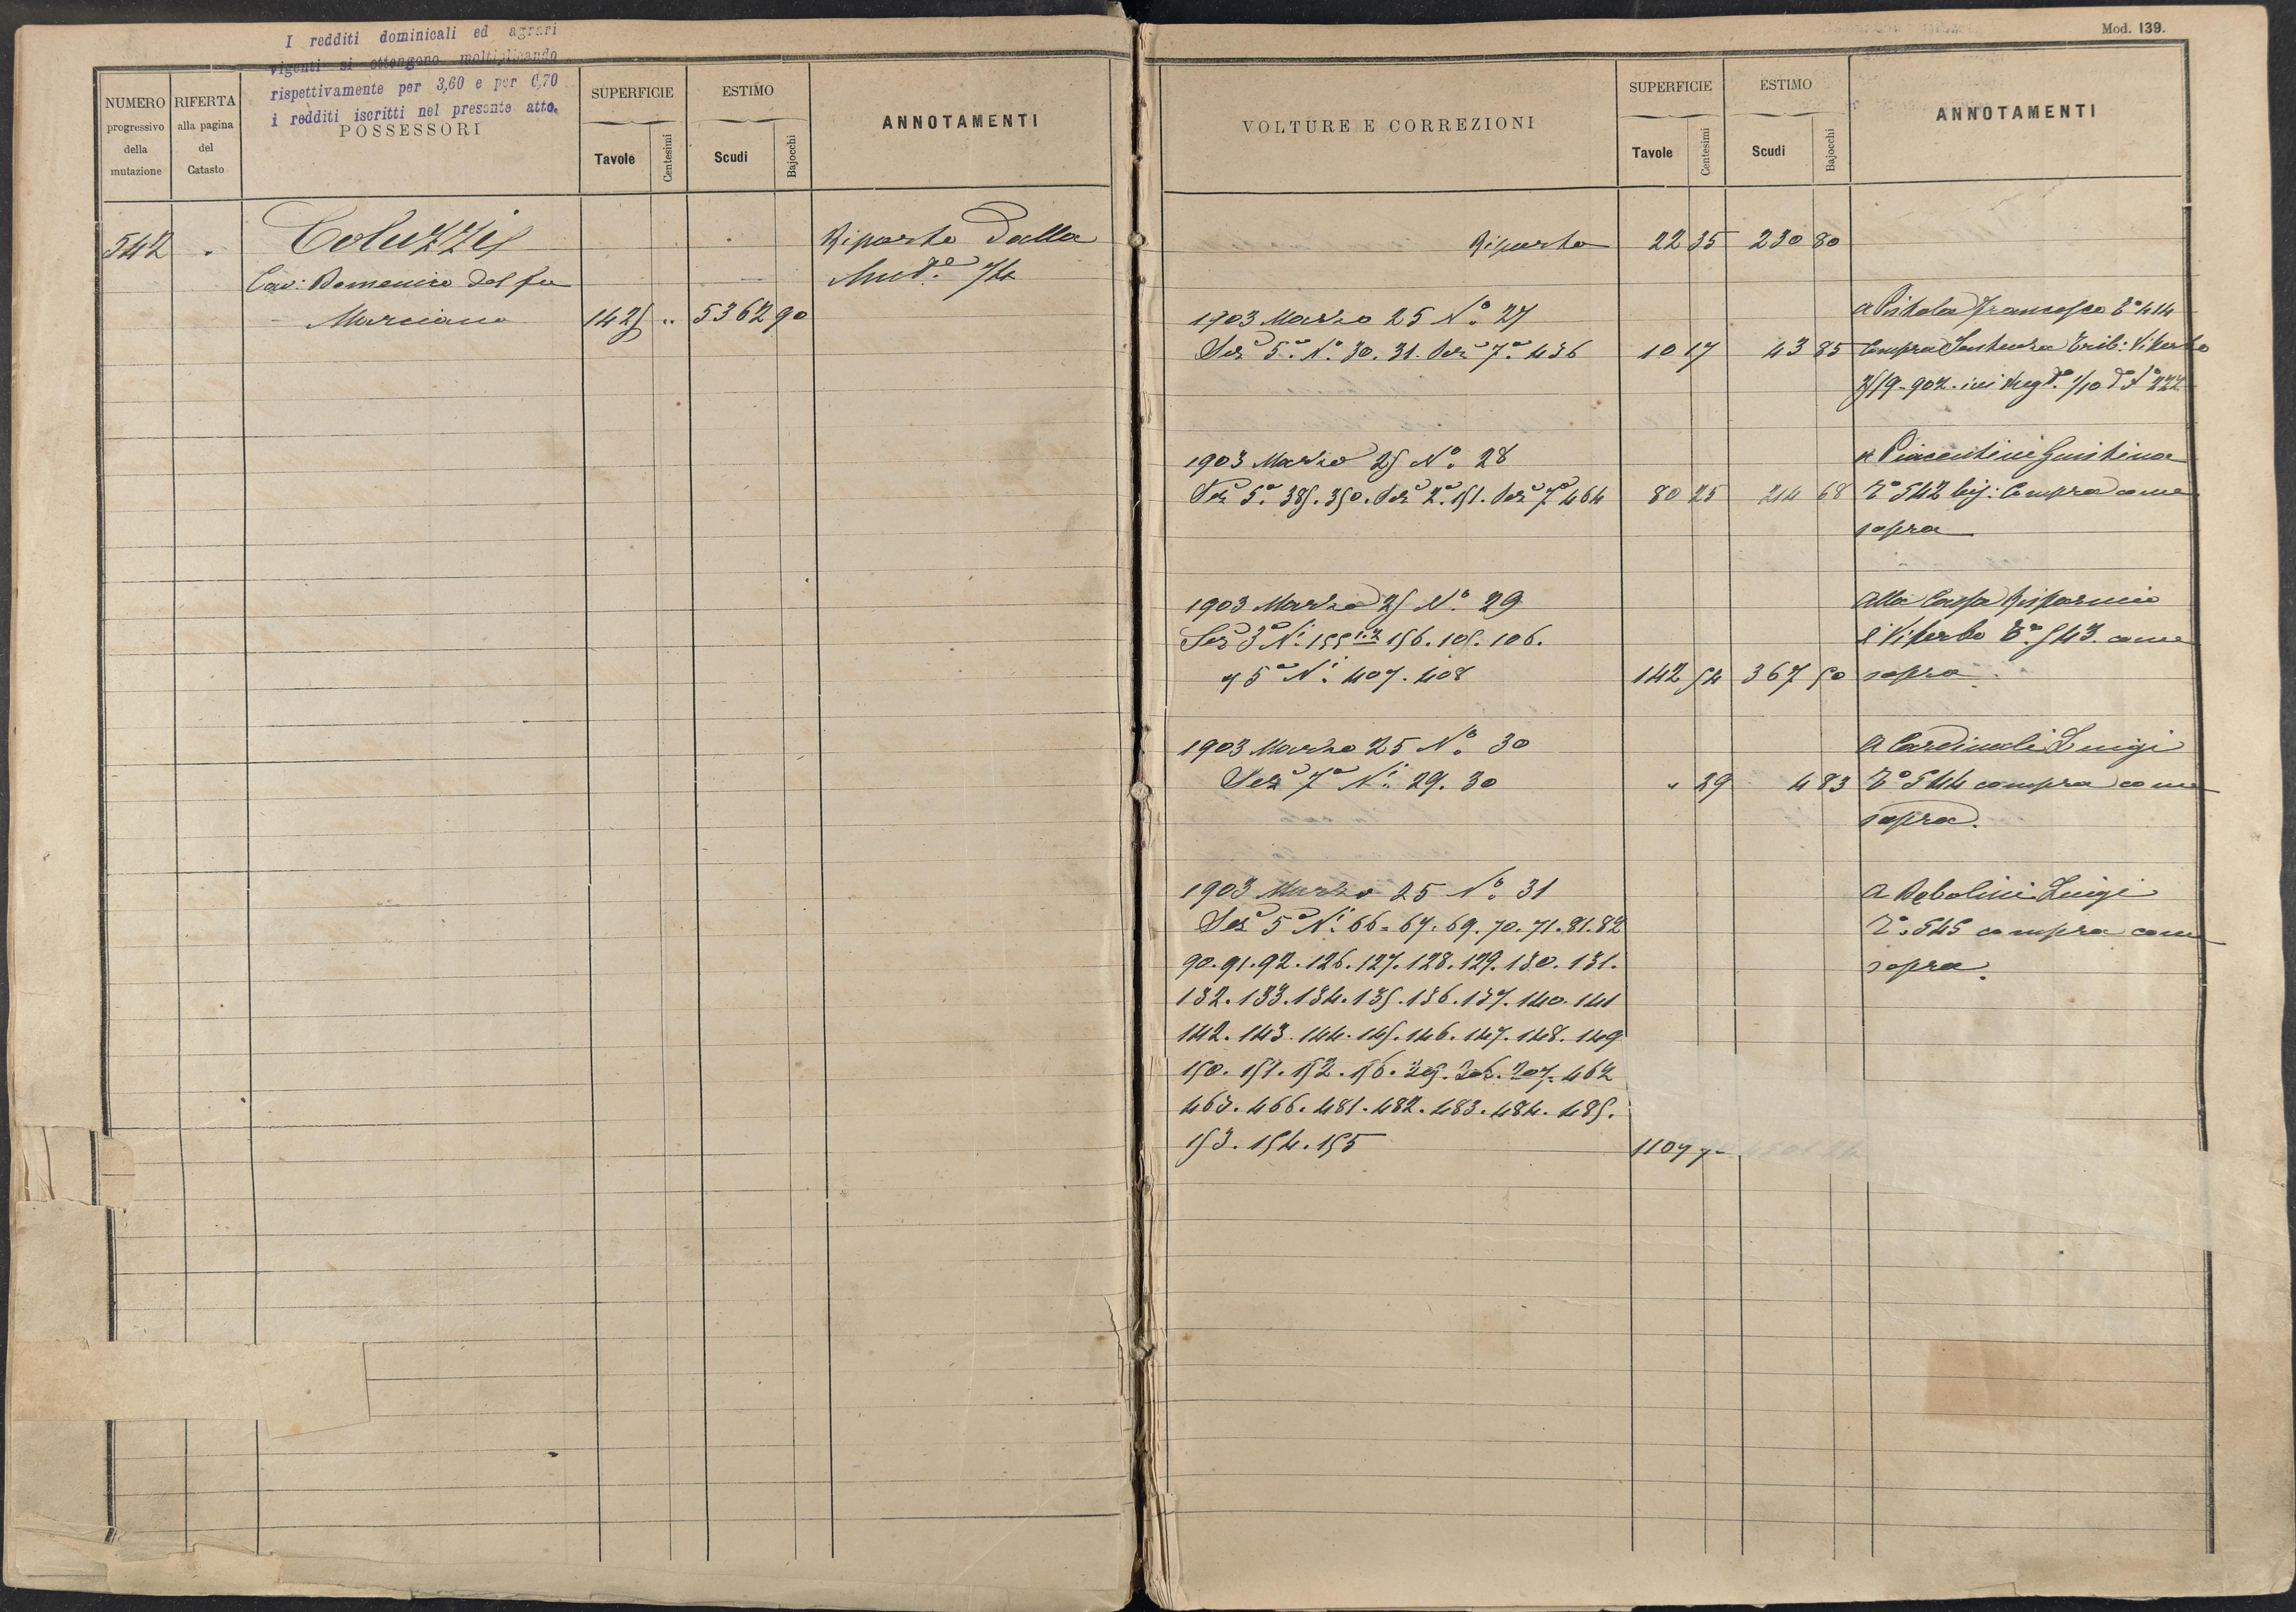 I redditi dominicali ed agrari
vigenti si ottengono moltiplicando
rispettivamente per 3,60 e per 0,70
i redditi iscritti nel presente atto.
NUMERO progressivo della mutazione
RIFERTA alla pagina del Catasto
POSSESSORI
SUPERFICIE
Tavole Centesimi
ESTIMO
Scudi Bajocchi
ANNOTAMENTI
542 Coluzzi Riporto dalla
Cav: Domenico del fu
Marciano 1425 .. 5362 90
Mod. 139.
VOLTURE E CORREZIONI
SUPERFICIE
Tavole Centesimi
ESTIMO
Scudi Bajocchi
ANNOTAMENTI
Riporto 22 35 230 80
1903 Marzo 25 Nº 27 a Pistola Francesco Tº 414
Sezº 5ª Nº 30. 31. Sezº 7ª 436 10 17 43 85 Compra Sentenza Trib: Viterbo
1903 Marzo 25 Nº 28 a Piacentini Giustina
Sezº 5ª 385. 350. Sezº 2ª 151. Sezº 7ª 464 80 25 214 68 Tº 542 bis: Compra come
sopra
1903 Marzo 25 Nº 29 Alla Cassa Risparmio
Sezº 3ª Nⁱ 155 1.2 156. 105. 106. Viterbo Tº 543 come
" 5ª Nⁱ 407. 408 142 54 367 50 sopra
1903 Marzo 25 Nº 30 A Cardinali Luigi
Sezº 7ª Nⁱ 29. 30 " 29 4 83 Tº 544 compra come
sopra.
1903 Marzo 25 Nº 31 A Luigi
Sezº 5ª Nⁱ 66. 67. 69. 70. 71. 81. 82 Tº 545 compra come
90. 91. 92. 126. 127. 128. 129. 130. 131. sopra.
132. 133. 134. 135. 136. 137. 140. 141
142. 143. 144. 145. 146. 147. 148. 149
150. 151. 152. 156. 207. 462
463. 466. 481. 482. 483. 484. 485.
153. 154. 155 1107